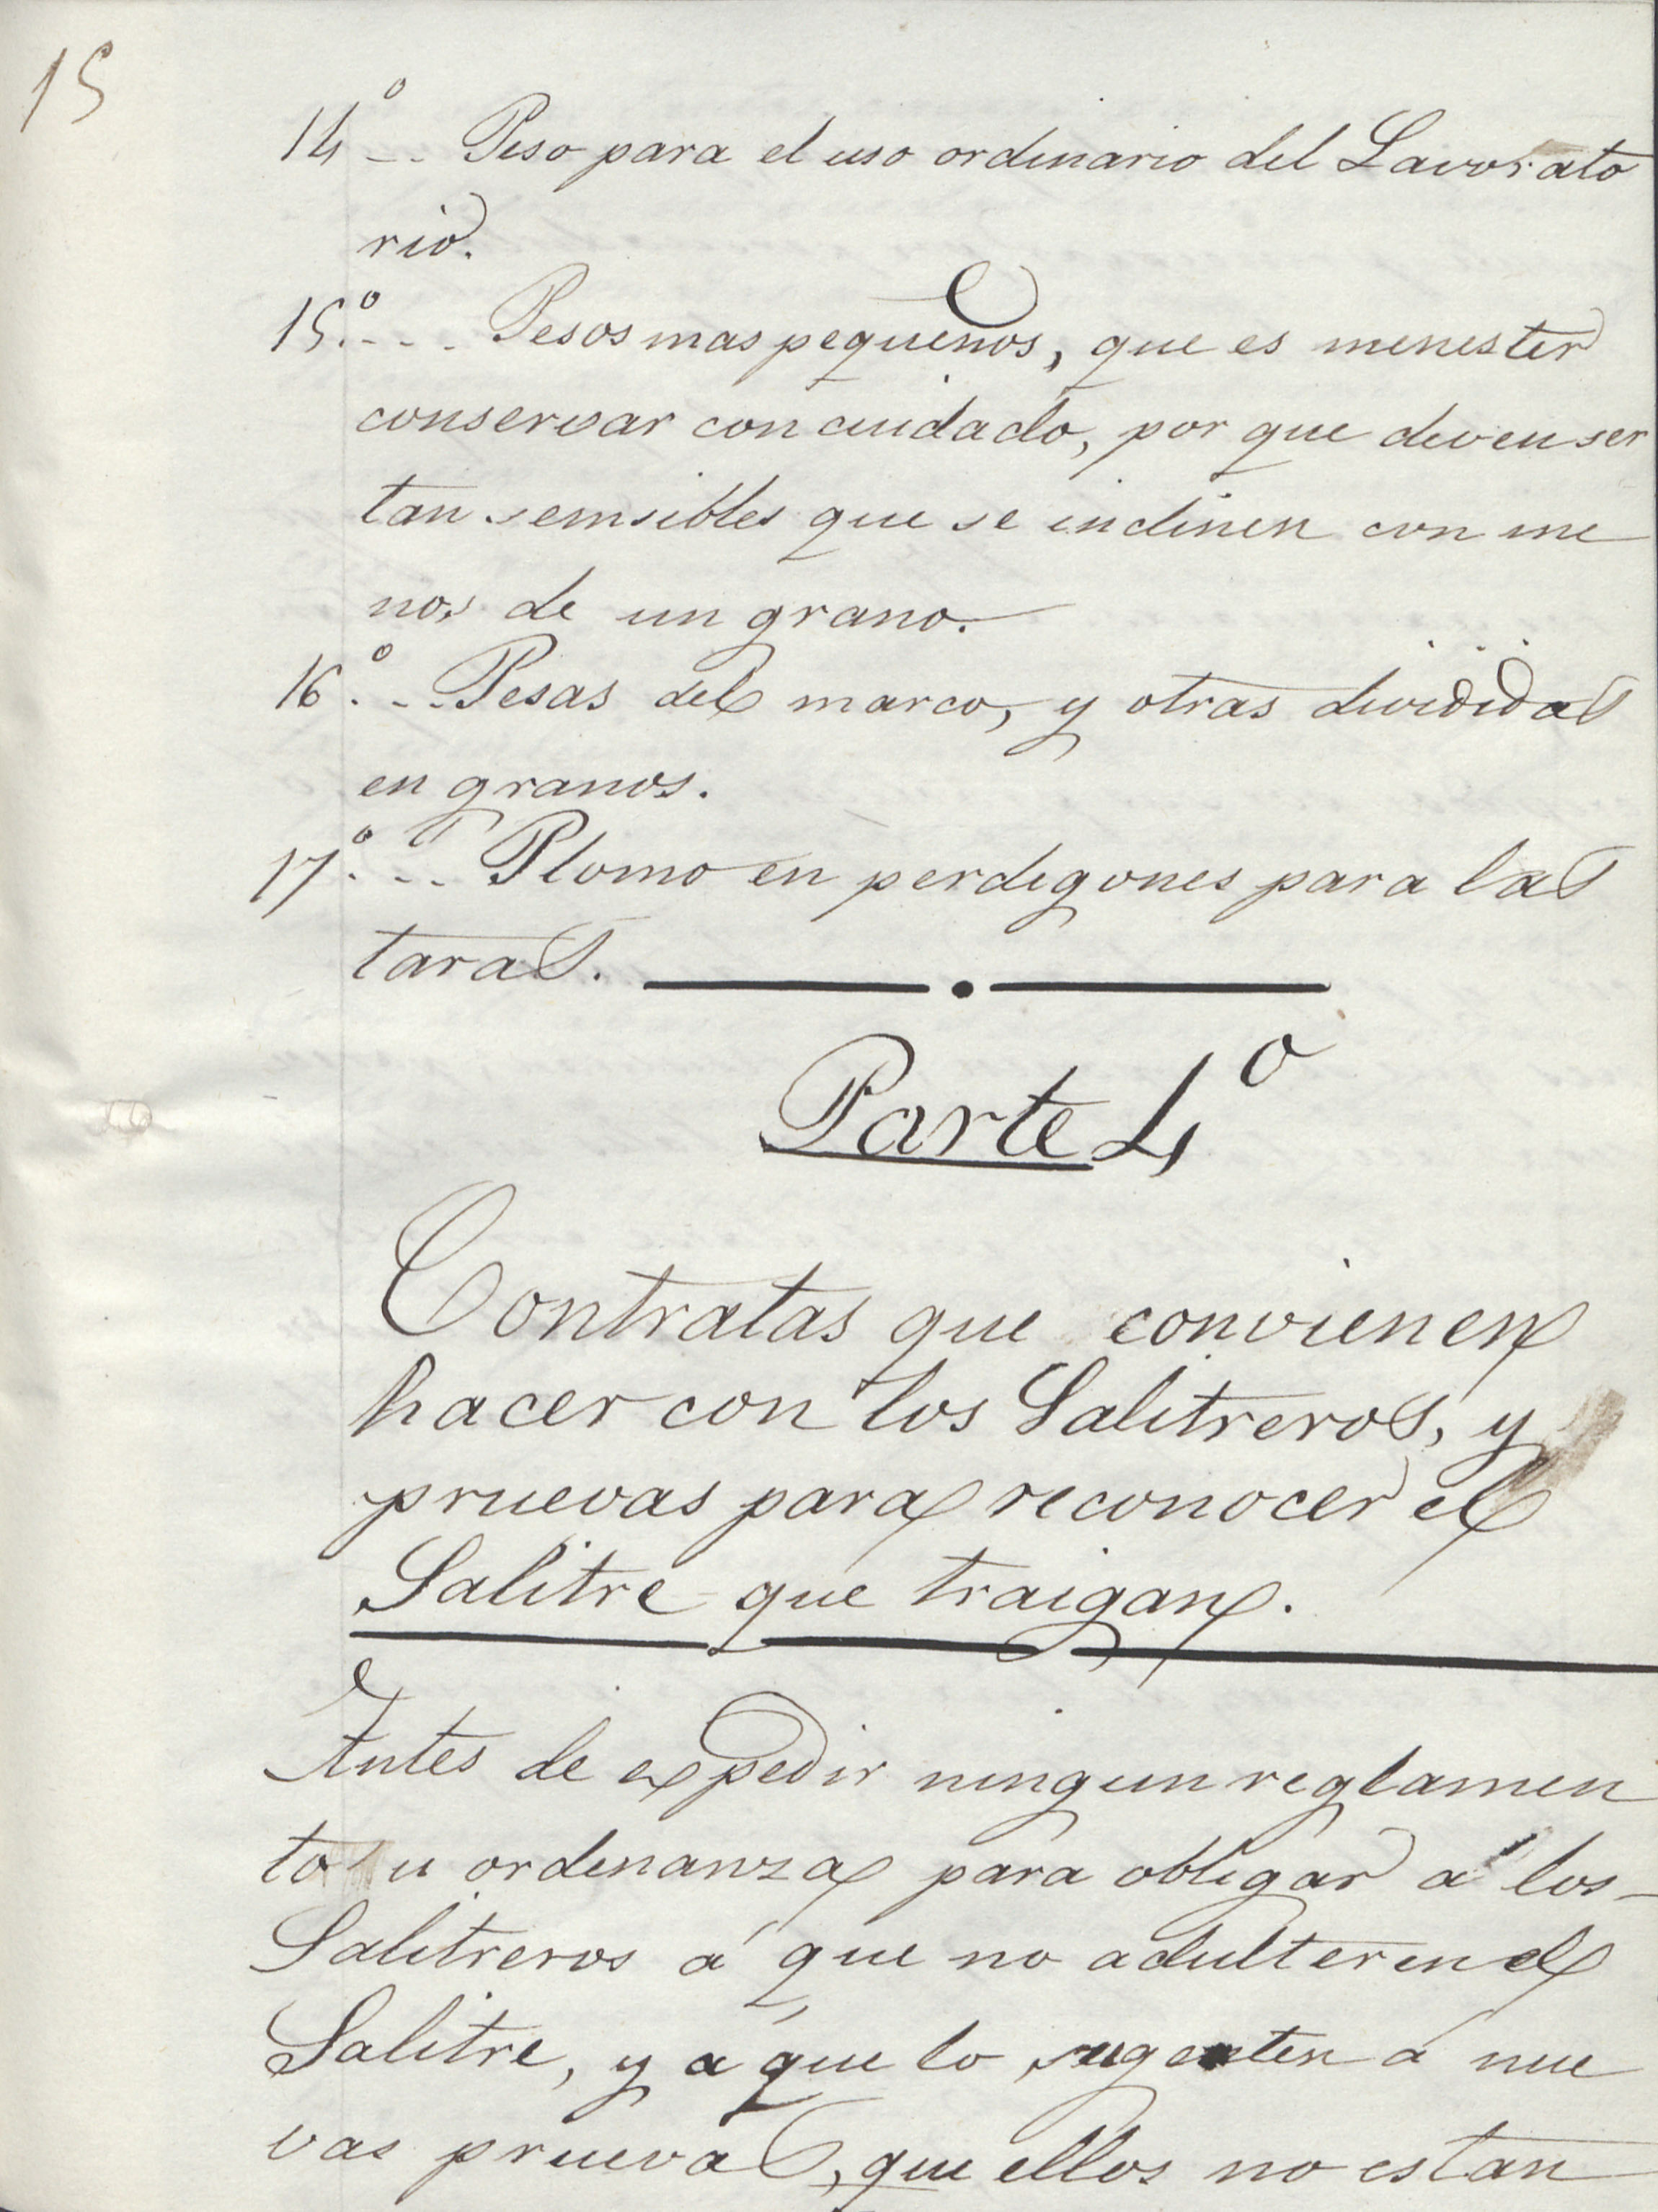 15
14º -- Peso para el uso ordinario del Lavorato
rio.
15.º--- Pesos mas pequeños, que es menester
conservar con cuidado, por que deven ser
tan semsibles que se inclinen con me
nos de un grano.
16.º-- Pesas del marco, y otras divididas
en granos.
17.º-- Plomo en perdigones para las
taras.
Parte 4º
Contratas que convienen
hacer con los Salitreros, y
pruevas para reconocer el
Salitre que traigan.
Antes de expedir ningun reglamen
to u ordenanza para obligar a los
Salitreros á que no adulteren el
Salitre, y a que lo sugeten a nue
vas pruevas, que ellos no estan